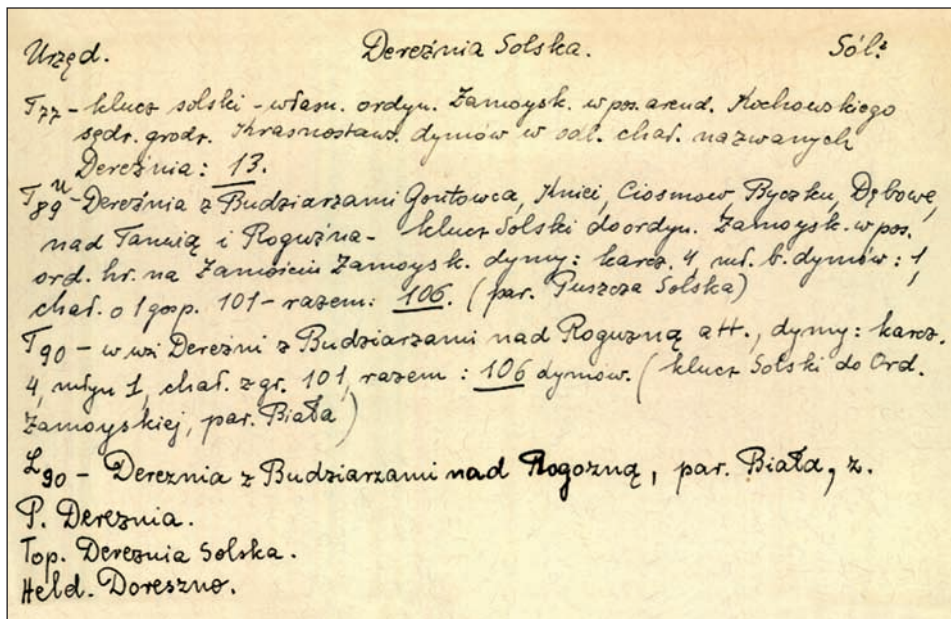 Urzęd. Dereźnia Solska. Sól:
T77 - klucz solski - własn. ordyn. Zamoysk. w pos. arend. Kochowskiego
sędz. grodz. Krasnostaws. dymów w odl. chał. nazwanych
Dereźnia: 13.
T89 - Dereźnia z Budziarzami Gontowca, Kniei, Ciosmow, Byczku, Dębowe,
nad Tanwią i Roguźna - klucz Solski do ordyn. Zamoysk. w pos.
ord. hr. na Zamościu Zamoysk. dymy: karcz. 4 mł. b. dymów: 1,
chał. o 1 gosp. 101 - razem: 106. (par. Puszcza Solska)
T90 - w wsi Dereźni z Budziarzami nad Roguzną att., dymy: karcz.
4, młyn 1, chał. z gr. 101, razem: 106 dymów. (klucz Solski do Ord.
Zamoyskiej, par. Biała)
L90 - Dereznia z Budziarzami nad Rogozną, par. Biała, z.
P. Dereznia.
Top. Dereznia Solska.
Held. Doreszno.